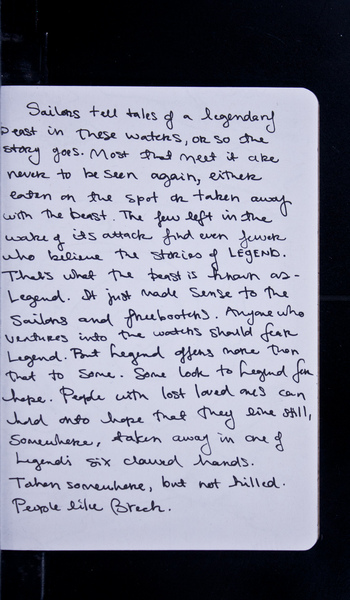 Sailors tell tales of a legendary
beast in these waters, or so the
story goes. Most that meet it are
never to be seen again, either
eaten on the spot or taken away
with the beast. The few left in the
wake of its attack find even fewer
who believe the stories of LEGEND.
That's what the beast is known as -
Legend. It just made sense to the
Sailors and freebooters. Anyone who
ventures into the waters should fear
Legend. But Legend offers more than
that to some. Some look to Legend for
hope. People with lost loved ones can
hold onto hope that they live still,
somewhere, taken away in one of
Legend's six clawed hands.
Taken somewhere, but not killed.
People like Brech.